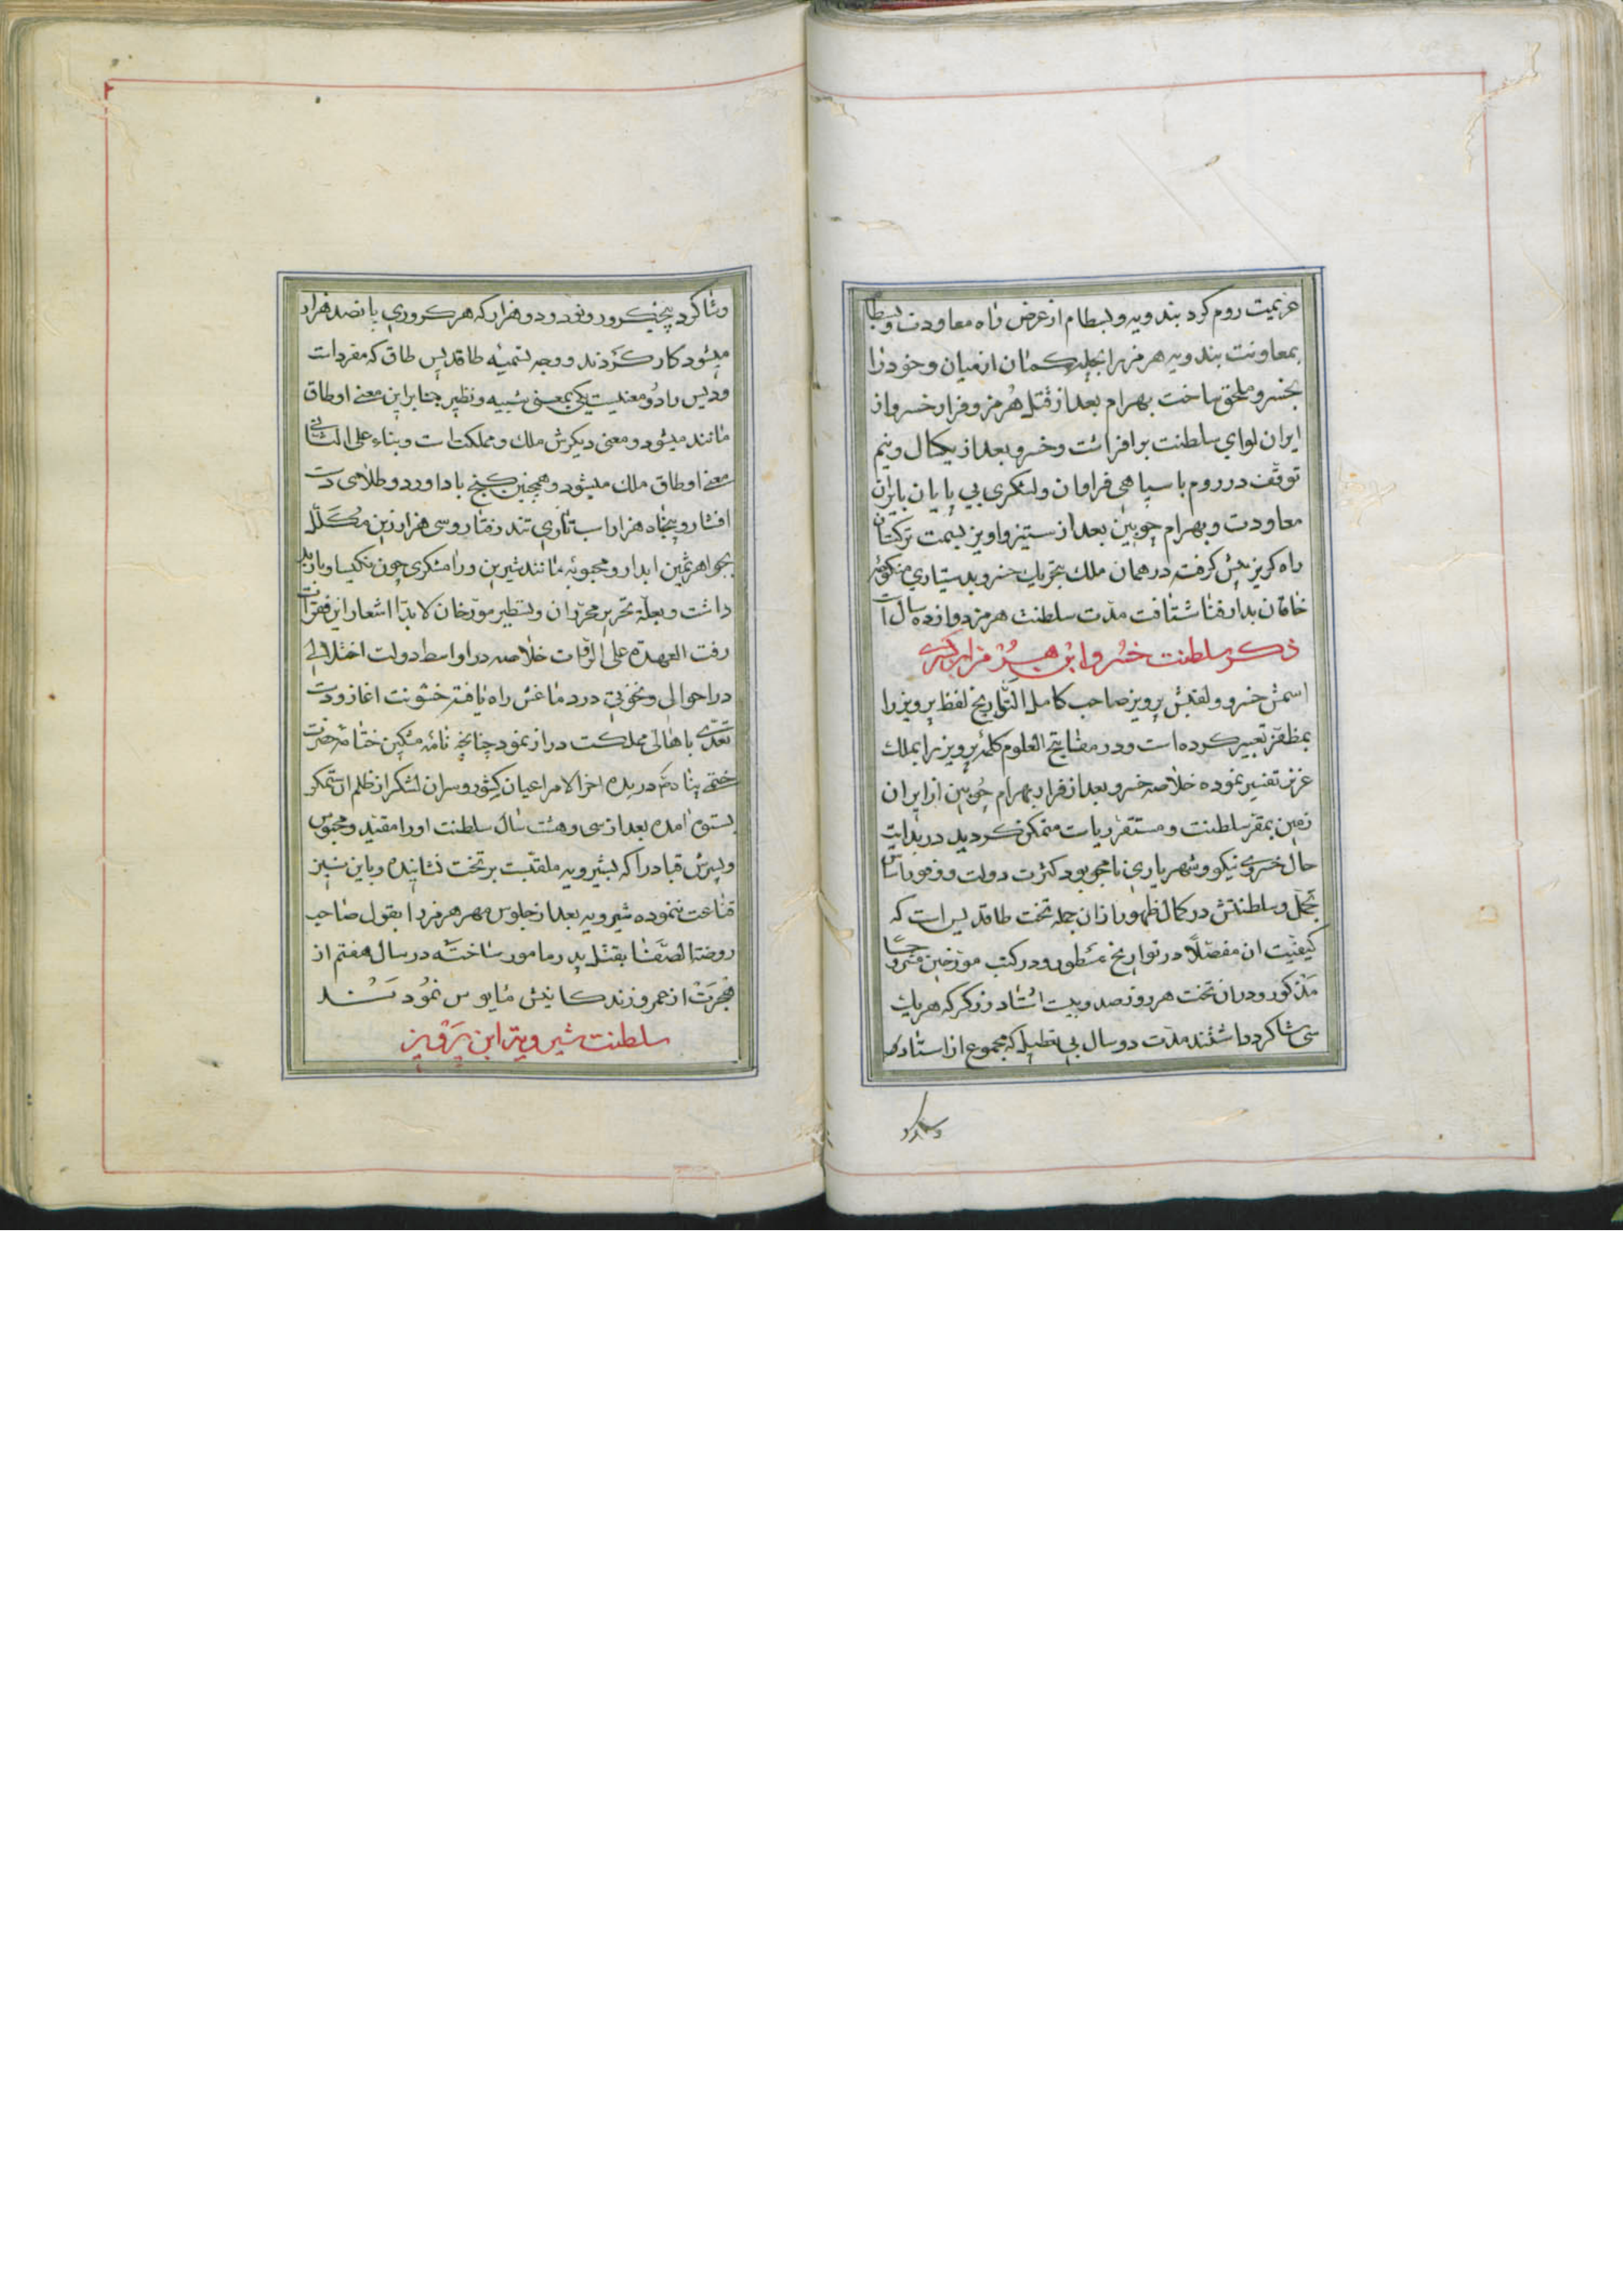 عزیمت روم کرد بندویه و بسطام از عرض راه معاودت و بسطام
بمعاونت بندویه هرمز را بچله کمان از میان و خود را
بخسرو ملحق ساخت بهرام بعد از قتل هرمز و فرار خسرو از
ایران لوای سلطنت برافراشت و خسرو بعد از یکسال و نیم
توقف در روم با سپاهی فراوان و لشکری بی پایان بایران
معاودت و بهرام چوبین بعد از ستیز و اویز بسمت ترکستان
راه کریز پیش کرفت در همان ملک بتحریک خسرو بدستیاری منکوحه
خاقان بدار فنا شتافت مدت سلطنت هرمز دوازده سال است
ذکر سلطنت خسرو ابن هرمز
اسمش خسرو و لقبش پرویز صاحب کامل التواریخ لفظ پرویز را
بمظفر تعبیر کرده است و در مفاتیح العلوم کلمه پرویز را بملک
عزیز تفسیر نموده خلاصه خسرو بعد از فرار بهرام چوبین از ایران
زمین بمقر سلطنت و مستقر ریاست متمکن کردید در بدایت
حال خسروی نیکو و شهریاری نامجو بود کثرت دولت و وفور اساس
تجمل و سلطنتش در کمال ظهور از ان جمله تخت طاقدیس است که
کیفیت ان مفصلا در تواریخ مسطور و در کتب مورخین مشروحا
مذکور و در ان تخت هر روز صد و بیست استاد زرکر که هر یک
سی شاکرد داشتند مدت دو سال بی تعطیل که مجموع از استاد
وشاکرد
وشاکرد پنجکرور و نود و دو هزار که هر کروری پانصد هزار
میشود کار کردند و وجه تسمیه طاقدیس طاق که مفرد است
و دیس را دو معنیست یکی بمعنی شبیه و نظیر بنا براین معنی او طاق
مانند میشود و معنی دیکرش ملک و مملکت است و بناء علی الثانی
معنی او طاق ملک میشود و همچنین کنج باداورد و طلای دست
افشار و پنجاه هزار اسب تازی تند رفتار و سی هزار زین مکلل
بجواهر ثمین ابدار و محبوبه مانند شیرین و رامشکری چون نکیسا و باربد
داشت و بعلة تحریر محرران و تسطیر مورخان لابدا اشعار این فقرات
رفت العهدة علی الروات خلاصه در اواسط دولت اختلالی
در احوالی و نخوتی در دماغش راه یافته خشونت اغاز و دست
تعدی باهالی مملکت دراز نمود چنانچه نامه مشکین ختامه حضرت
ختمی پناه را درید اخر الامر اعیان کشور و سران لشکر از ظلم ان ستمکر
بستوه امده بعد از سی و هشت سال سلطنت او را مقید و محبوس
و پسرش قباد را که بشیرویه ملقبست بر تخت نشانیده و باین نیز
قناعت ننموده شیرویه بعد از جلوس مهر هرمز را بقول صاحب
روضة الصفا بقتل پدر مامور ساخته در سال هفتم از
هجرت از عمر و زندکانیش مایوس نمودند
سلطنت شیرویه ابن پرویز